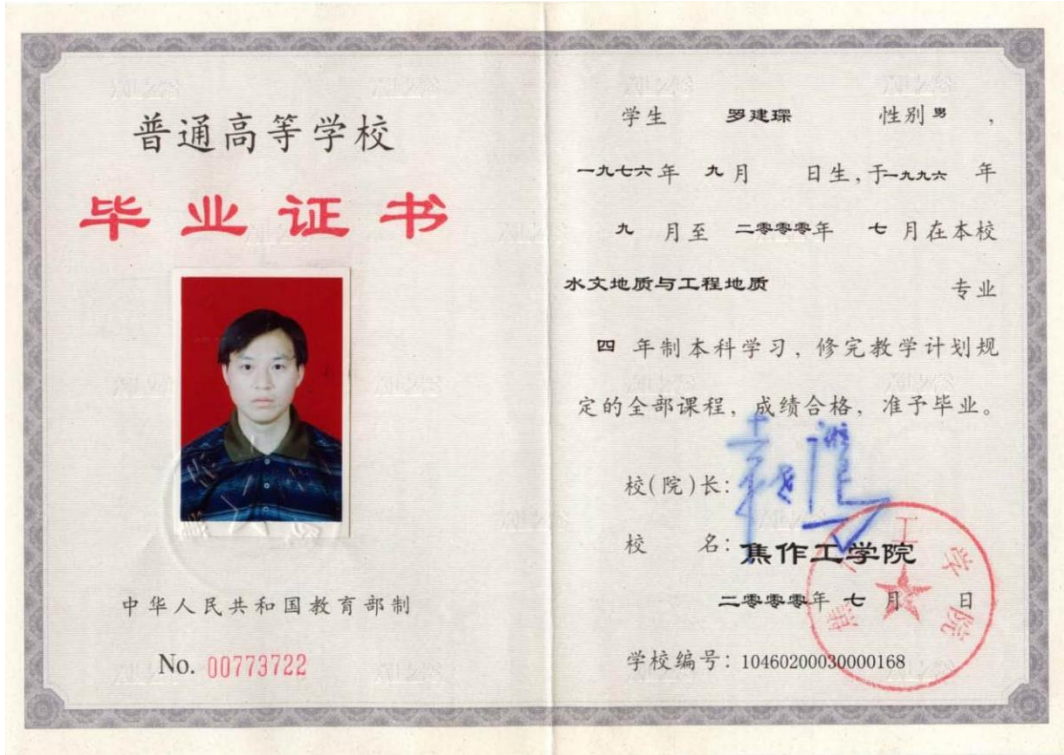 普通高等学校
毕业证书
中华人民共和国教育部制
No. 00773722
学生 罗建琛 性别 男 ,
一九七六年 九月 日生,于一九九六 年
九 月至 二零零零年 七 月在本校
水文地质与工程地质 专业
四 年制本科学习, 修完教学计划规
定的全部课程, 成绩合格, 准予毕业。
校(院)长:
校 名: 焦作工学院
二零零零年 七 月 日
学校编号: 10460200030000168
焦作工学院